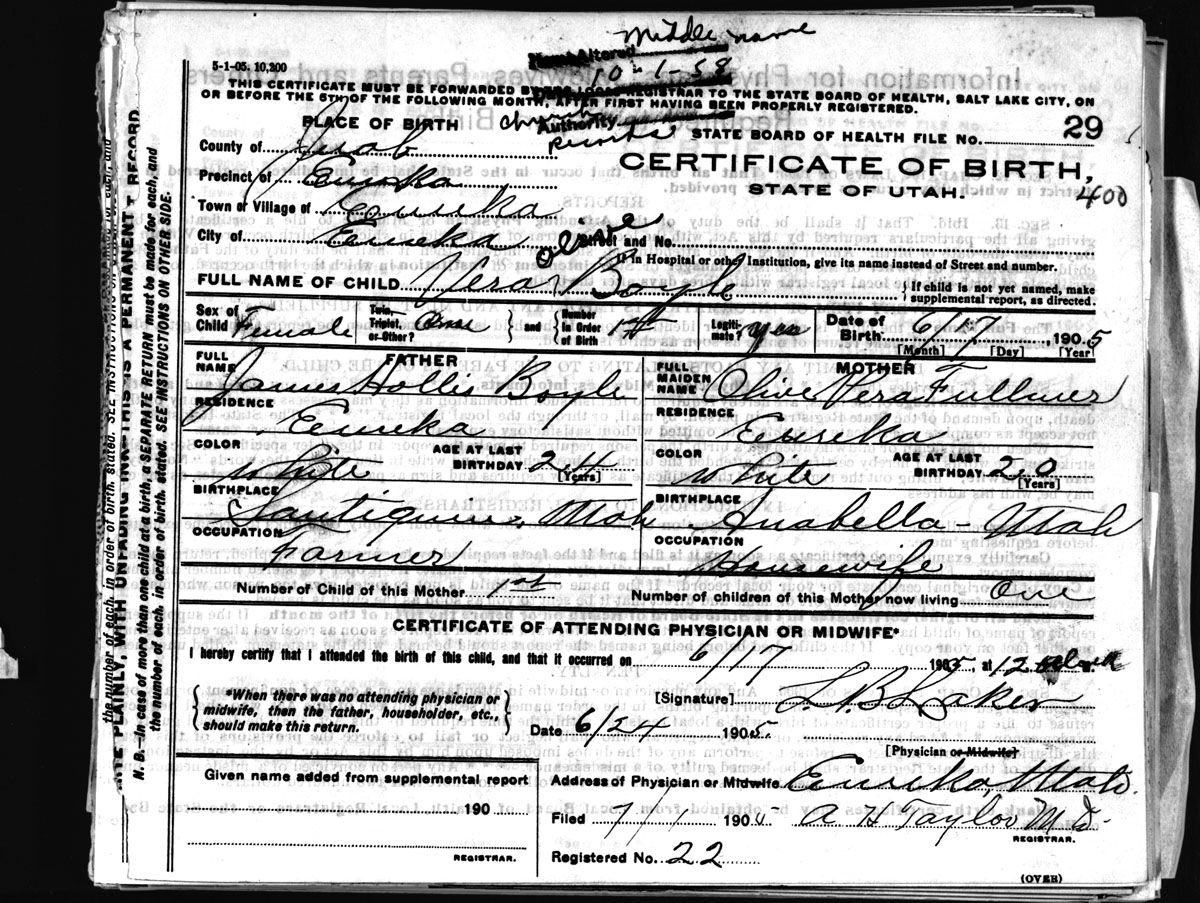 Middle name
5-1-05. 10,200
Altered
10-1-58
THIS CERTIFICATE MUST BE FORWARDED BY LOCAL REGISTRAR TO THE STATE BOARD OF HEALTH, SALT LAKE CITY, ON
OR BEFORE THE 5TH OF THE FOLLOWING MONTH, AFTER FIRST HAVING BEEN PROPERLY REGISTERED.
PLACE OF BIRTH church Authority records
STATE BOARD OF HEALTH FILE No. 29
County of Juab
CERTIFICATE OF BIRTH,
Precinct of Eureka
STATE OF UTAH. 400
Town or Village of Eureka
City of Eureka Street and No.
If in Hospital or other Institution, give its name instead of Street and number.
Olive
FULL NAME OF CHILD Vera Boyle { If child is not yet named, make supplemental report, as directed.
Sex of Child Female Twin, Triplet, or Other? One } and { Number in Order of Birth 1st Legiti-mate? yes Date of Birth 6/17, 1905
[Month] [Day] [Year]
FATHER MOTHER
FULL NAME James Hollis Boyle FULL MAIDEN NAME Olive Vera Fullmer
RESIDENCE Eureka RESIDENCE Eureka
COLOR White AGE AT LAST BIRTHDAY 24 [Years] COLOR White AGE AT LAST BIRTHDAY 20 [Years]
BIRTHPLACE Santiquin, Utah BIRTHPLACE Anabella - Utah
OCCUPATION Farmer OCCUPATION Housewife
Number of Child of this Mother 1st Number of children of this Mother now living One
CERTIFICATE OF ATTENDING PHYSICIAN OR MIDWIFE*
I hereby certify that I attended the birth of this child, and that it occurred on 6/17 1905, at 12
{ *When there was no attending physician or midwife, then the father, householder, etc., should make this return. }
[Signature]
Date 6/24 1905
[Physician or Midwife]
Given name added from supplemental report
190
REGISTRAR.
Address of Physician or Midwife Eureka, Utah.
Filed 7/1 190 A H Taylor M D.
REGISTRAR.
Registered No. 22
(OVER)
the number of each, in order of birth, stated. SEE INSTRUCTIONS
PLAINLY, WITH UNFADING INK—THIS IS A PERMANENT RECORD.
N. B.—In case of more than one child at a birth, a SEPARATE RETURN must be made for each, and
the number of each, in order of birth, stated. SEE INSTRUCTIONS ON OTHER SIDE.